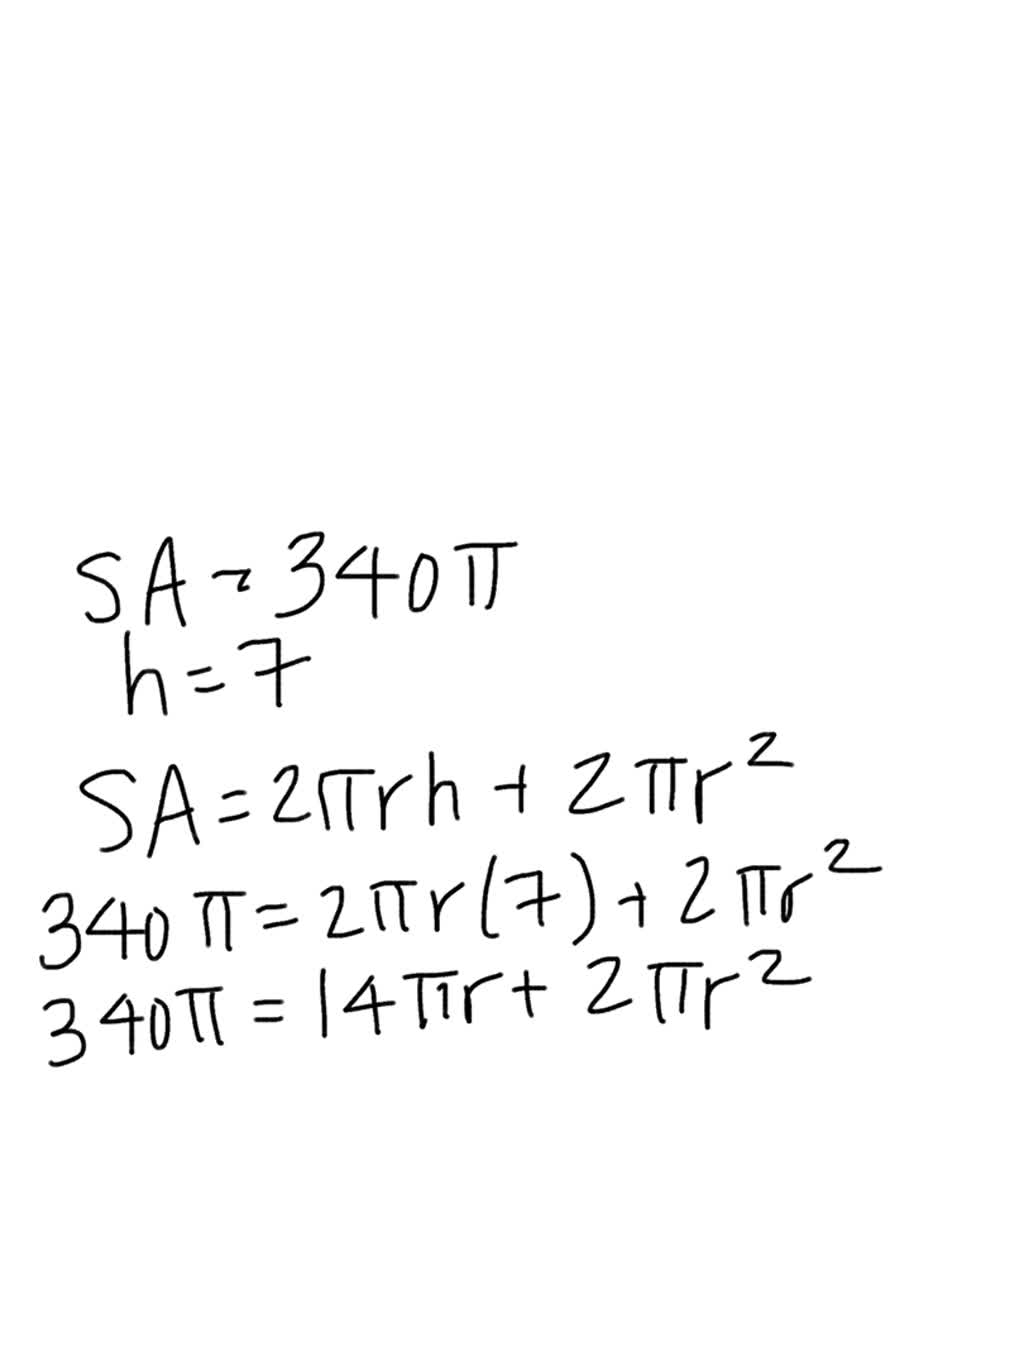 SA = 340π
h = 7
SA = 2πrh + 2πr²
340π = 2πr(7) + 2πr²
340π = 14πr + 2πr²